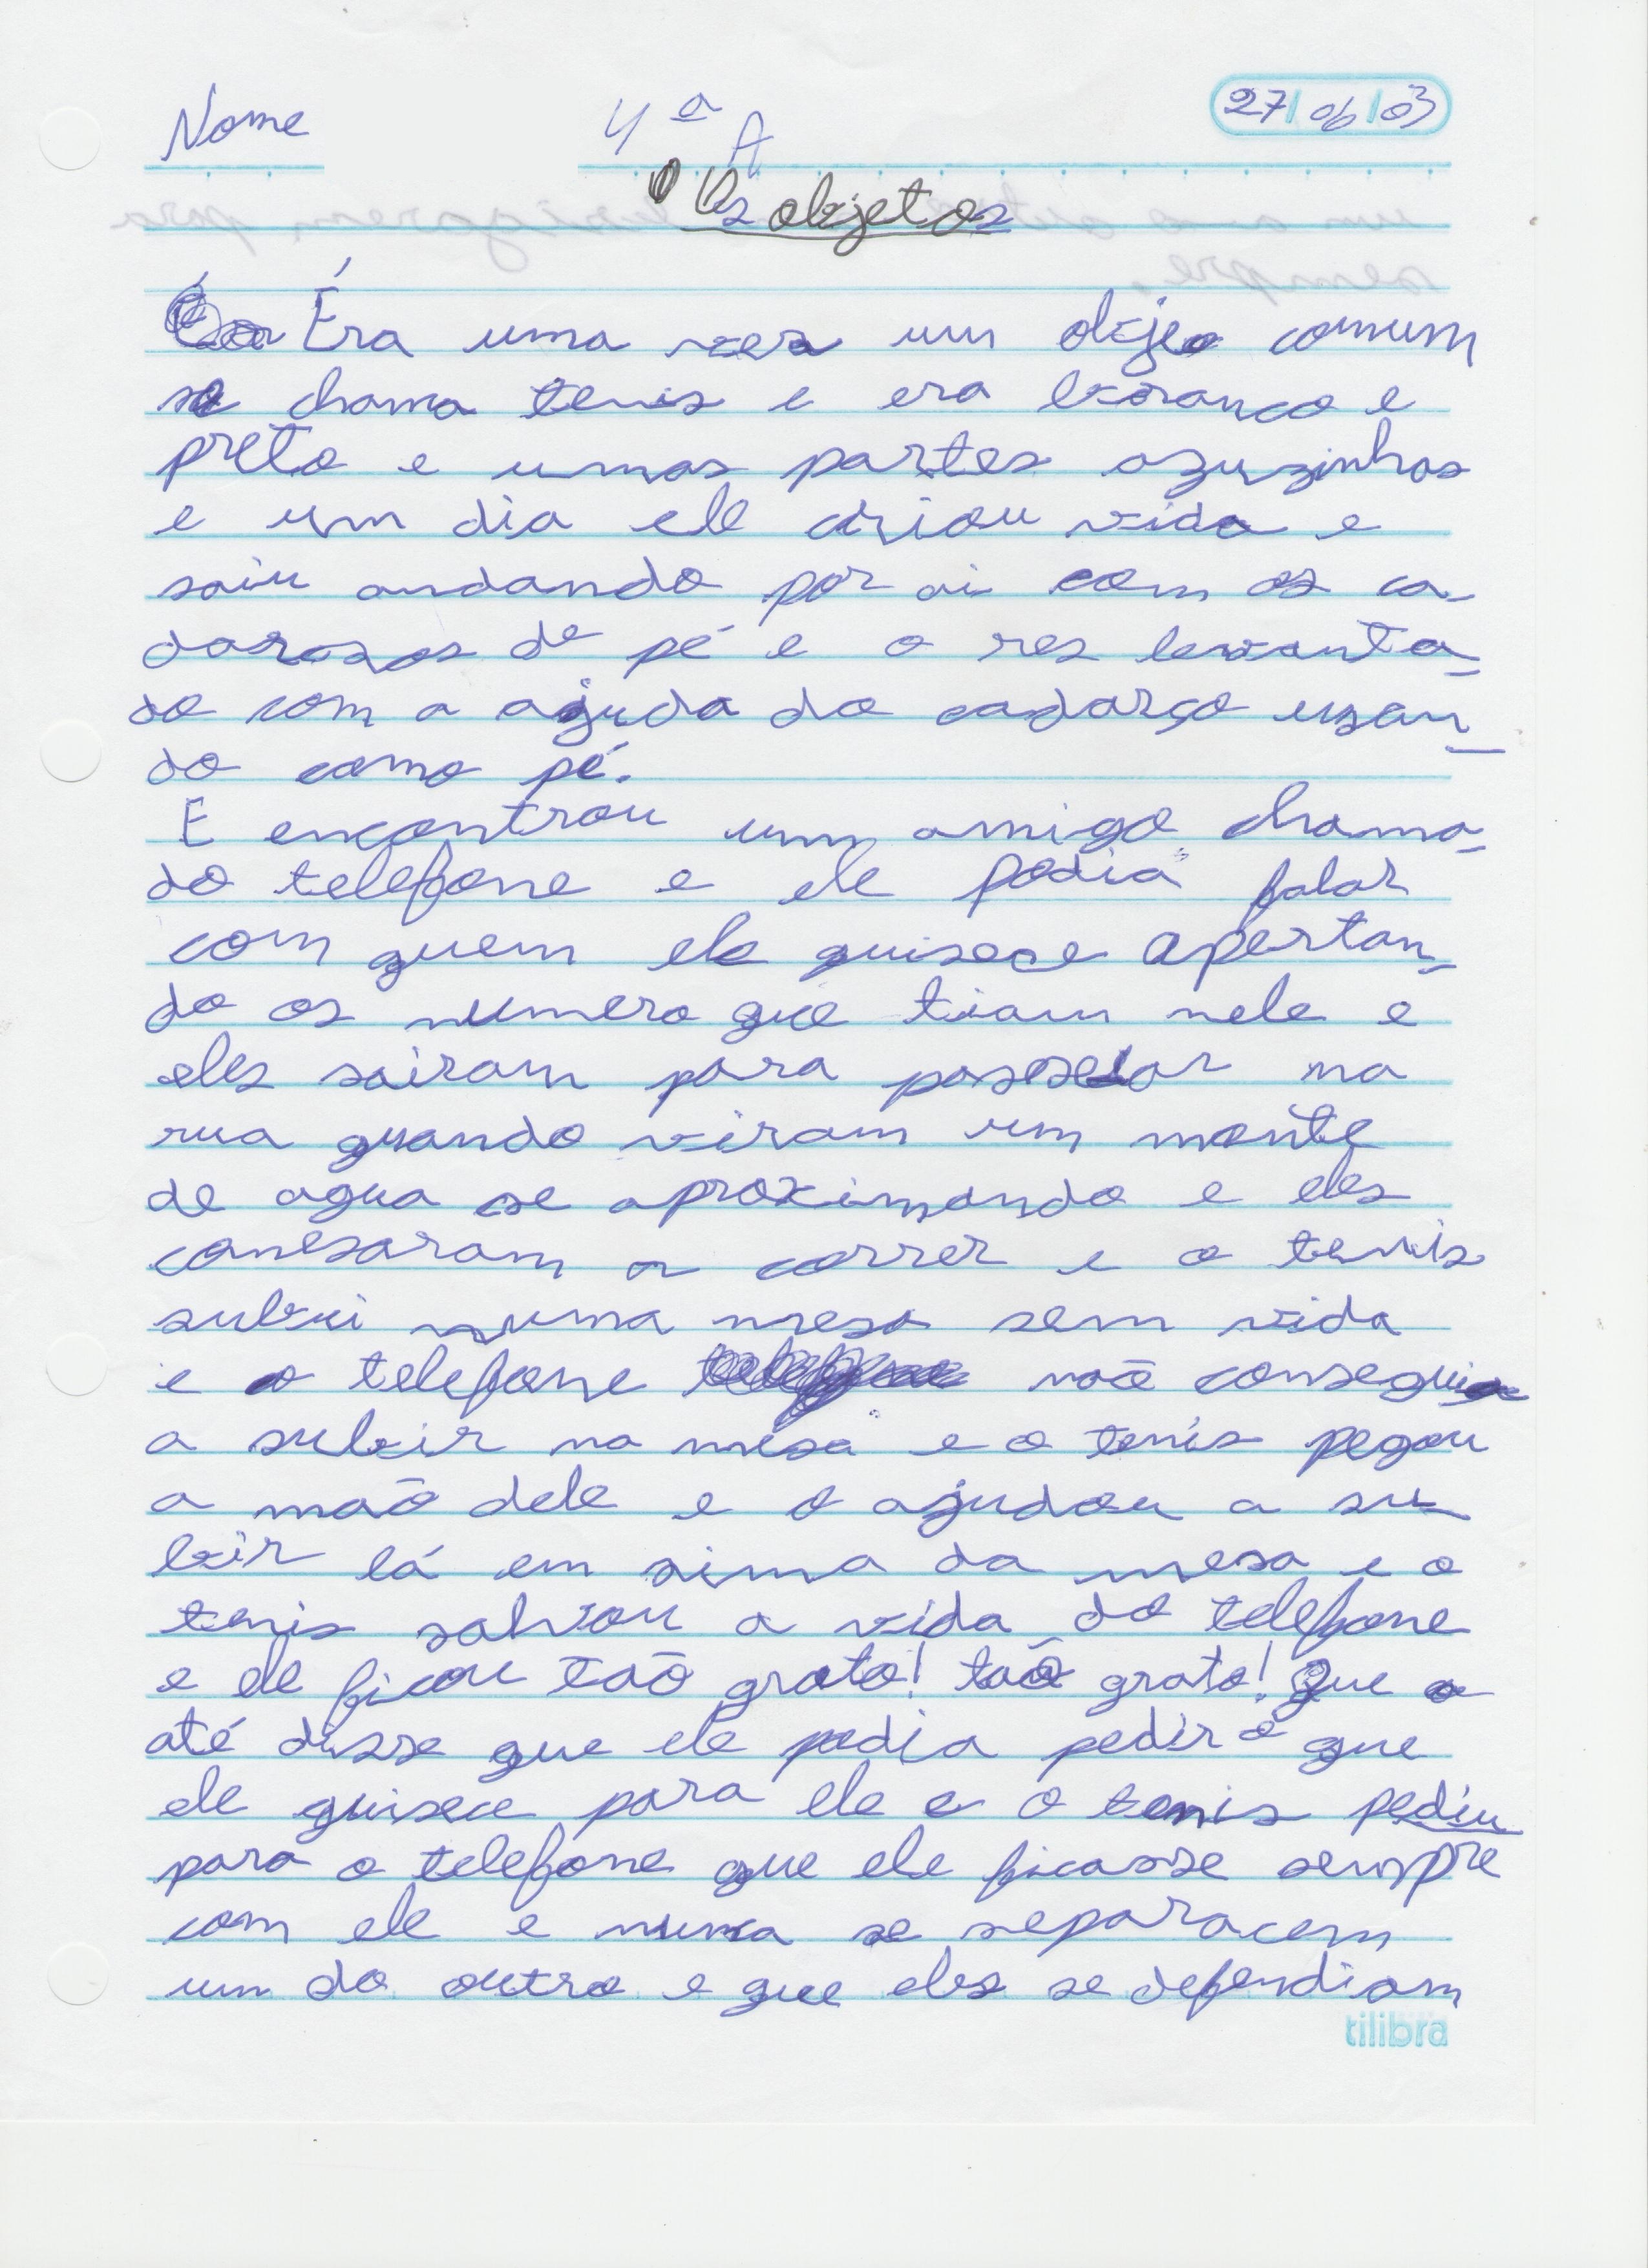 Nome 4ª A 27/06/03
Os objetos
Éra uma vez um objeo comum
se chama tenis e era branco e
preto e umas partes azuzinhas
e um dia ele criou vida e
saiu andando por ai com os ca-
darsos de pé e o res levanta-
do com a ajuda do cadarço usan-
do como pé.
E encontrou um amigo chama-
do telefone e ele podia falar
com quem ele quisece apertan-
do os numero que tiam nele e
eles sairam para passeiar na
rua quando viram um monte
de agua se aproximando e eles
comesaram a correr e o tenis
subiu numa mesa sem vida
e o telefone não consegui
a subir na mesa e o tenis pegou
a maõ dele e o ajudou a su-
bir lá em sima da mesa e o
tenis salvou a vida do telefone
e ele ficou taõ grato! taõ grato! Que
até disse que ele podia pedir o que
ele quisece para ele e o tenis pediu
para o telefone que ele ficasse sempre
com ele e nunca se separacem
um do outro e que eles se defendiam
tilibra
um a o outro
para
sempre.